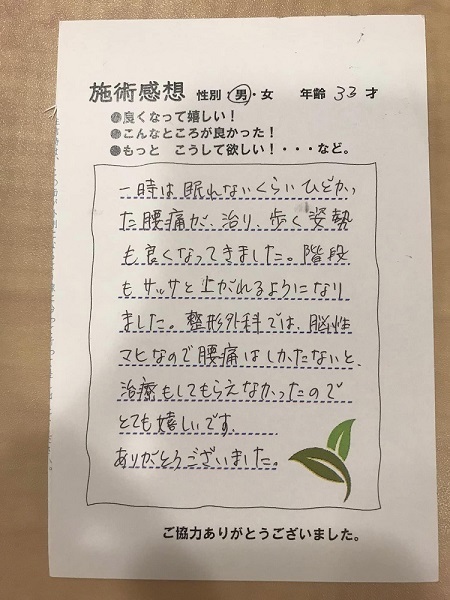 施術感想 性別・男・女 年齢 33才
●良くなって嬉しい！
●こんなところが良かった！
●もっと こうして欲しい！・・・など。
一時は眠れないくらいひどかっ
た腰痛が、治り、歩く姿勢
も良くなってきました。階段
もサッサと上がれるようになり
ました。整形外科では、脳性
マヒなので腰痛はしかたないと、
治療もしてもらえなかったので
とても嬉しいです。
ありがとうございました。
ご協力ありがとうございました。